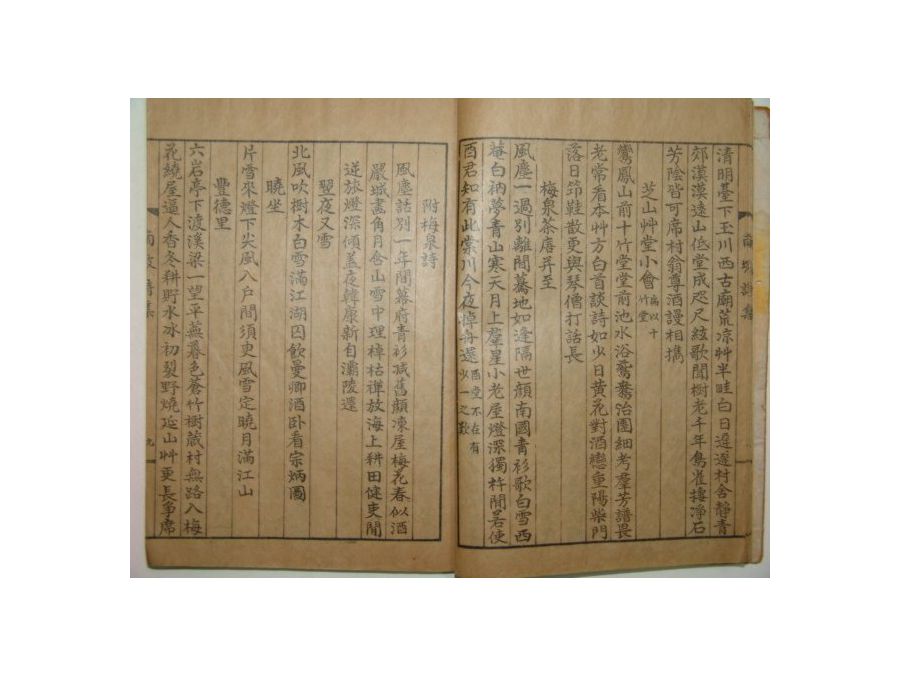 清明臺下玉川西古廟荒凉艸半畦白日遲遲村舍靜青
郊漠漠遠山低堂成咫尺絃歌聞樹老千年鳥雀捿淨石
芳陰皆可席村翁尊酒謾相擕
芝山艸堂小會
鸞鳳山前十竹堂堂前池水浴鴛鴦治園細考羣芳譜畏
老常看本艸方白首談詩如少日黄花對酒戀重陽柴門
落日笻鞋散更與琴僧打話長
梅泉茶磨幷至
風塵一過別離間驀地如逢隔世顔南國青衫歌白雪西
菴白衲夢青山寒天月上羣星小老屋燈深獨杵閒若使
酉君知有此棠川今夜悼舟還 酉堂不在有少一之歎
附梅泉詩
風塵話別一年間幕府青衫减舊顔凍屋梅花春似酒
嚴城畫角月含山雪中理棹枯禪放海上耕田健吏閒
逆旅燈深傾盖夜韓康新自灞陵還
翌夜又雪
北風吹樹木白雪滿江湖因飮曼卿酒卧看宗炳圖
曉坐
片雪來燈下尖風入戶間須臾風雪定曉月滿江山
豐德里
六岩亭下渡溪梁一望平蕪暮色蒼竹樹蔵村無路入梅
花繞屋逼人香冬耕貯水冰初裂野燒延山艸更長争席
九